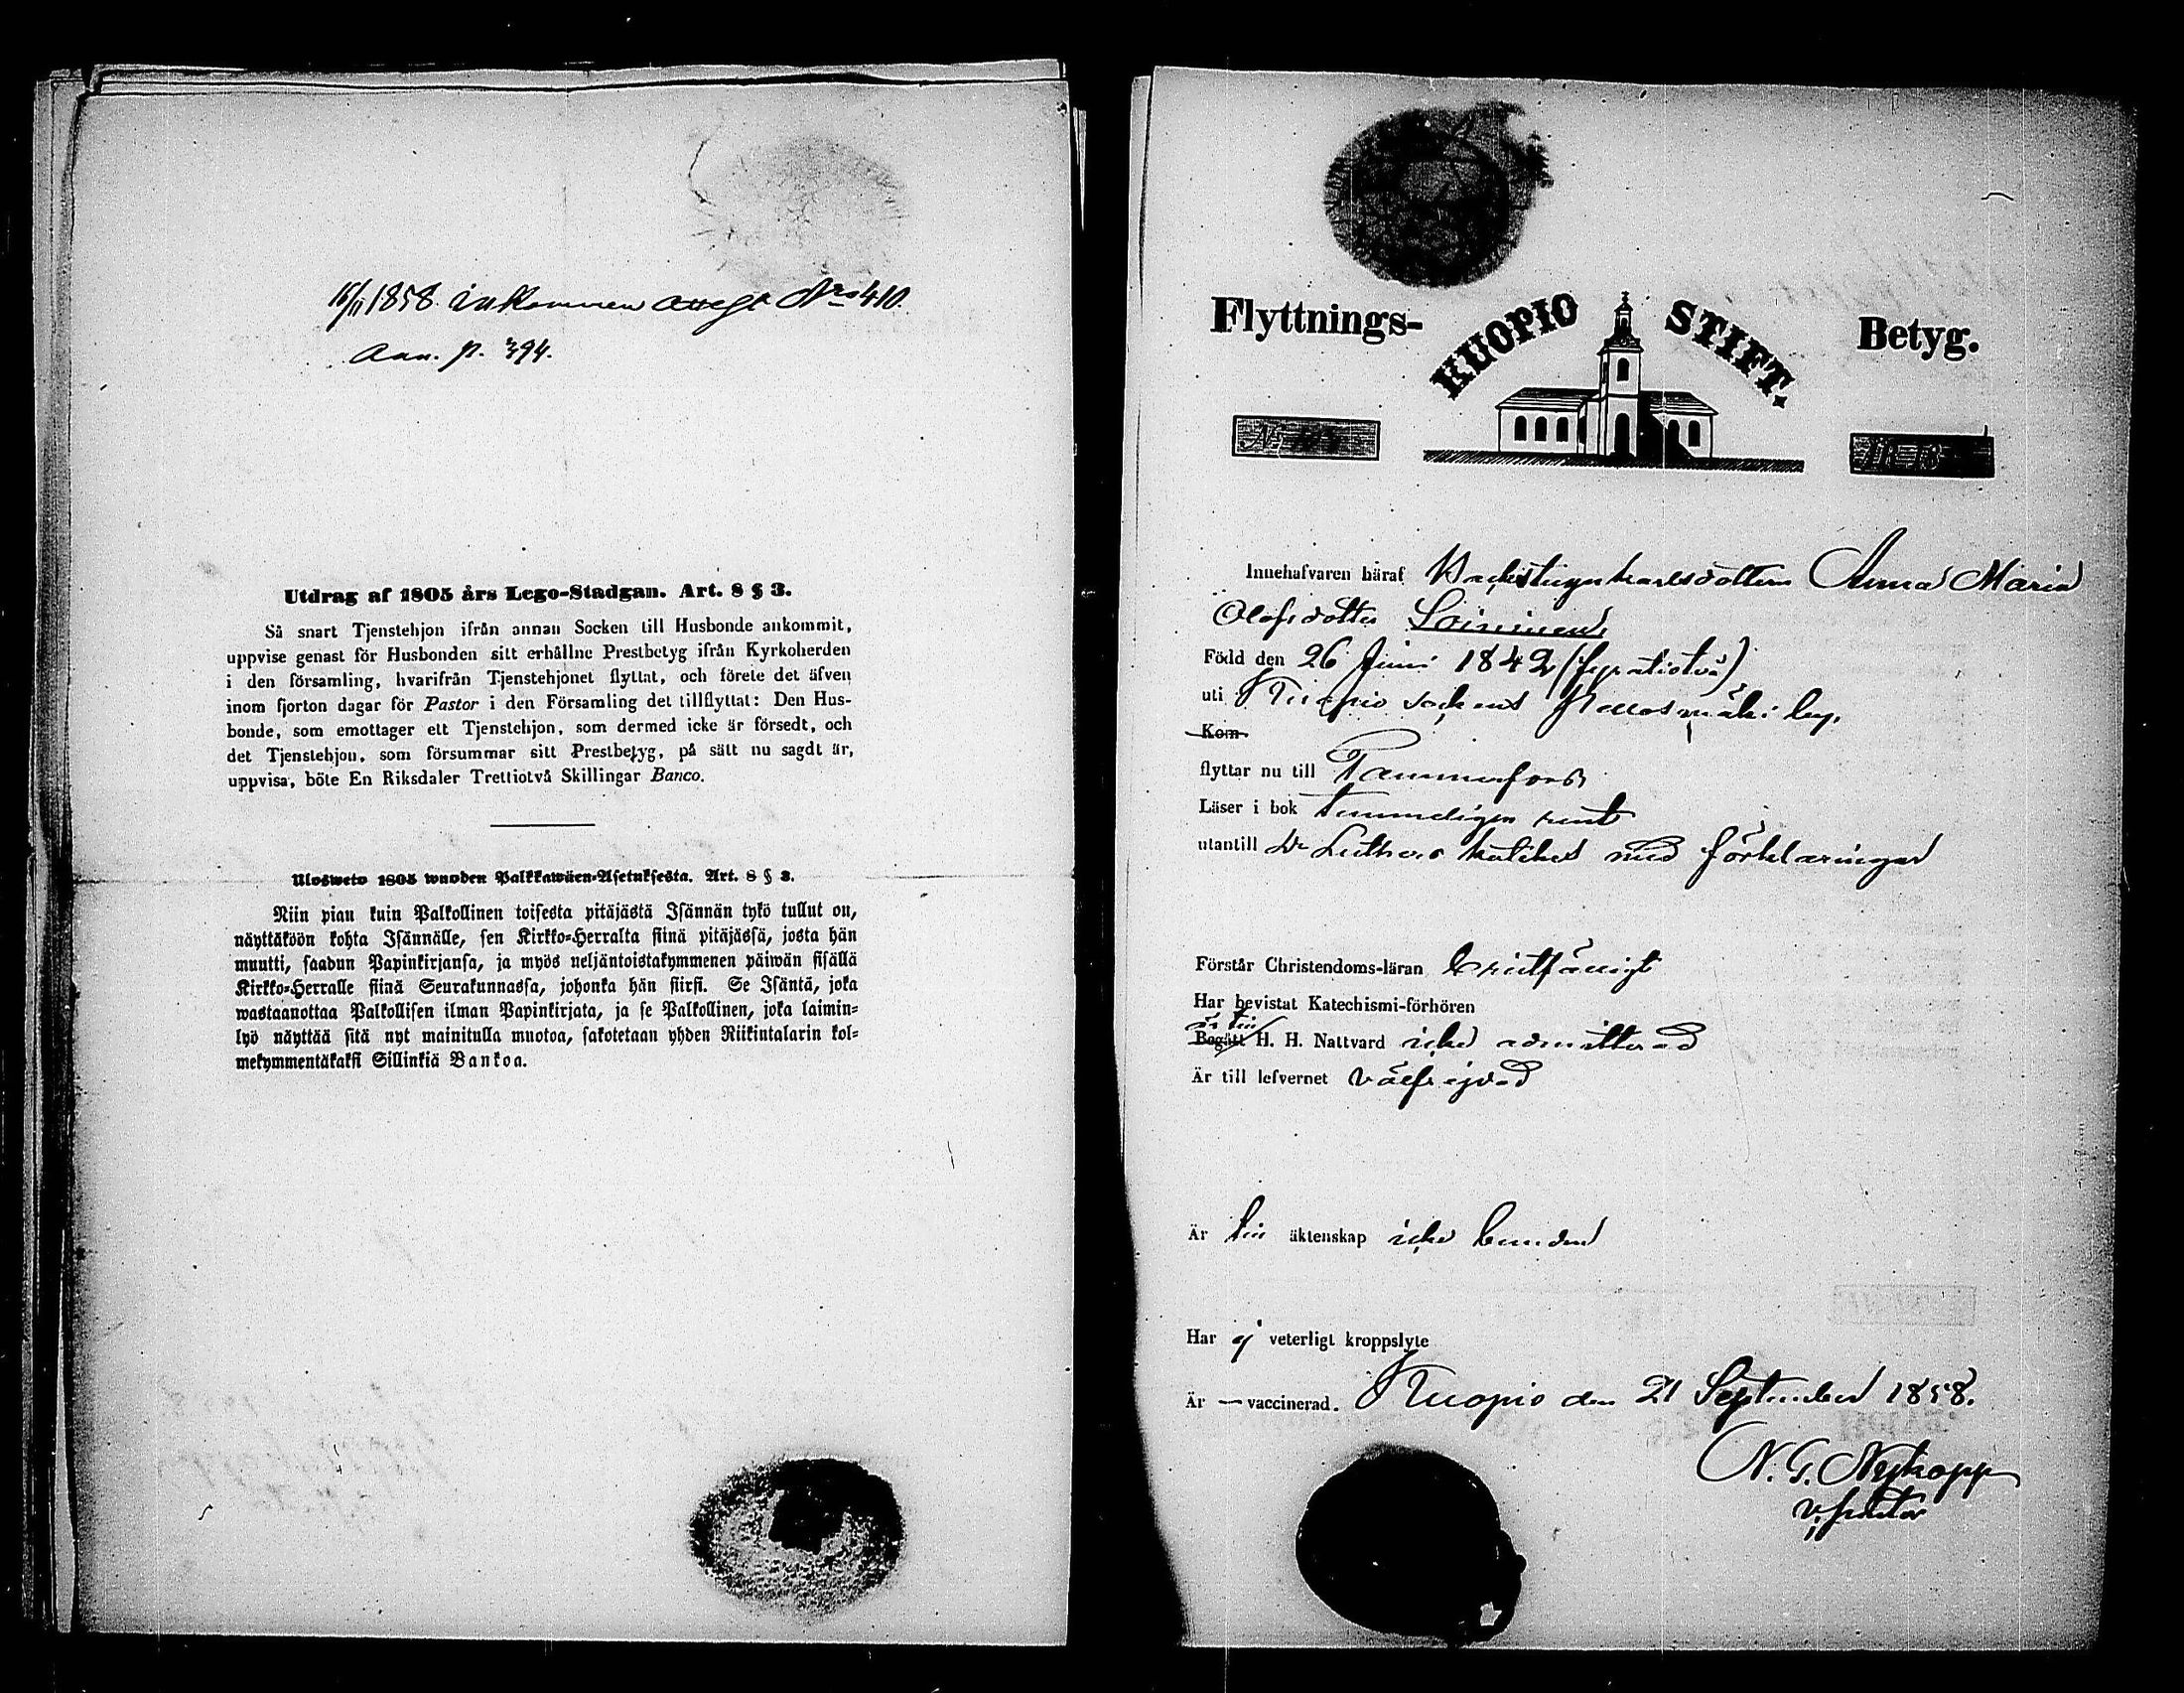 15/11 1858. inkommen attest Nro 410.
Ann. p. 394.
Utdrag af 1805 års Lego-Stadgan. Art. 8 § 3.
Så snart Tjenstehjon ifrån annan Socken till Husbonde ankommit,
uppvise genast för Husbonden sitt erhållne Prestbetyg ifrån Kyrkoherden
i den församling, hvarifrån Tjenstehjonet flyttat, och förete det äfven
inom fjorton dagar för Pastor i den Församling det tillflyttat: Den Hus-
bonde, som emottager ett Tjenstehjon, som dermed icke är försedt, och
det Tjenstehjon, som försummar sitt Prestbetyg, på sätt nu sagdt är,
uppvisa, böte En Riksdaler Trettiotvå Skillingar Banco.
Ulosweto 1805 wuoden Palkkawäen-Asetuksesta. Art. 8 § 3.
Niin pian kuin Palkollinen toisesta pitäjästä Isännän tykö tullut on,
näyttäköön kohta Isännälle, sen Kirkko-Herralta siinä pitäjässä, josta hän
muutti, saadun Papinkirjansa, ja myös neljäntoistakymmenen päiwän sisällä
Kirkko-Herralle siinä Seurakunnassa, johonka hän siirsi. Se Isäntä, joka
wastaanottaa Palkollisen ilman Papinkirjata, ja se Palkollinen, joka laimin-
lyö näyttää sitä nyt mainitulla muotoa, sakotetaan yhden Riikintalarin kol-
mekymmentäkaksi Sillinkiä Bankoa.
Flyttnings- KUOPIO STIFT. Betyg.
Innehafvaren häraf Anna Maria
Olofsdotter Soininen
Född den 26 Juni 1842 (fyratiotvå)
uti Kuopio sockens by.
Kom
flyttar nu till Tammerfors
Läser i bok temmeligen rent
utantill Dr Luthers kateches med förklaringar
Förstår Christendoms-läran enfaldigt
Har bevistat Katechismi-förhören
är till
Begått H. H. Nattvard icke admitterad
Är till lefvernet välfrejdad
Är till äktenskap icke bunden
Har ej veterligt kroppslyte
Är — vaccinerad. Kuopio den 21 September 1858.
N. G. Nykopp
v. pastor